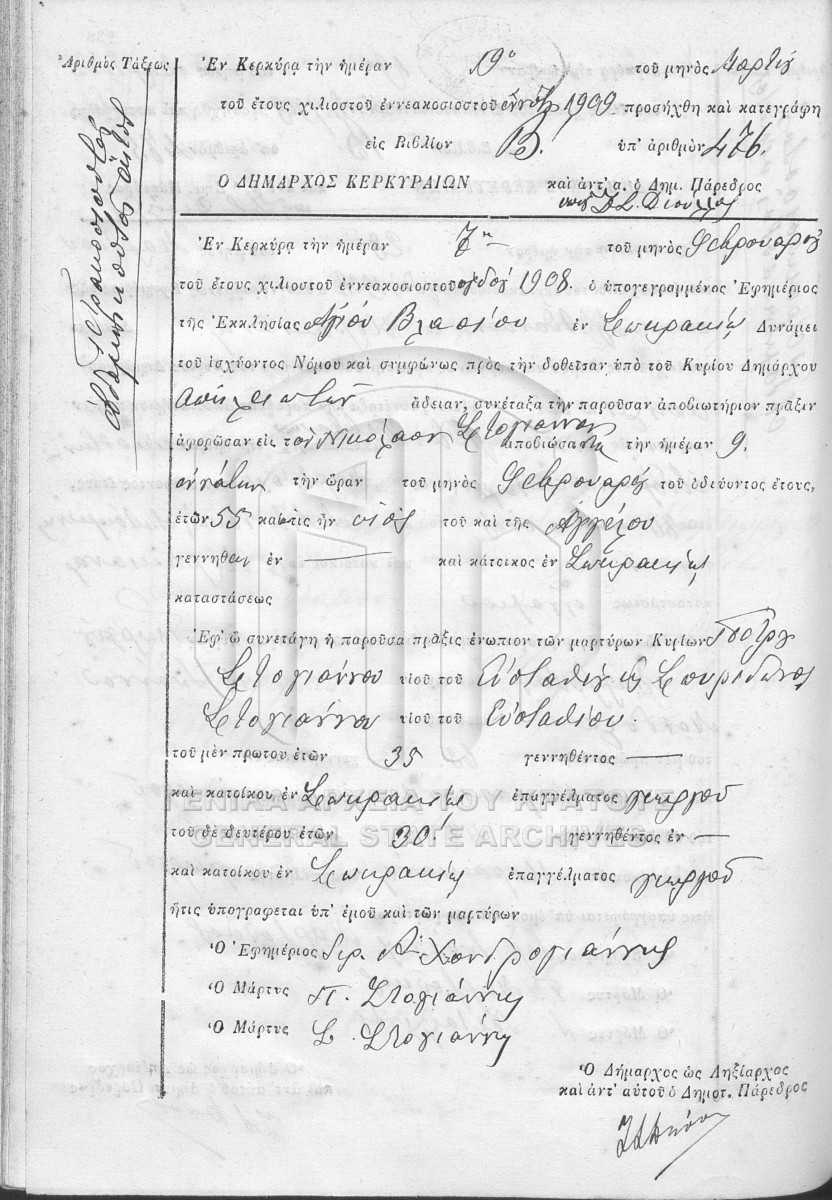 Ἀριθμὸς Τάξεως
Ἐν Κερκύρᾳ τὴν ἡμέραν 19η τοῦ μηνὸς Μαρτίου
τοῦ ἔτους χιλιοστοῦ ἐννεακοσιοστοῦ 1909 προσήχθη καὶ κατεγράφη
εἰς Βιβλίον Β. ὑπ' ἀριθμὸν 476.
Ο ΔΗΜΑΡΧΟΣ ΚΕΡΚΥΡΑΙΩΝ καὶ ἀντ' α. ὁ Δημ. Πάρεδρος
Ἐν Κερκύρᾳ τὴν ἡμέραν 7 τοῦ μηνὸς Φεβρουαρίου
τοῦ ἔτους χιλιοστοῦ ἐννεακοσιοστοῦ ὀγδόου 1908. ὁ ὑπογεγραμμένος Ἐφημέριος
τῆς Ἐκκλησίας Ἁγίου Βλασίου ἐν Σωκρακίῳ Δυνάμει
τοῦ ἰσχύοντος Νόμου καὶ συμφώνως πρὸς τὴν δοθεῖσαν ὑπὸ τοῦ Κυρίου Δημάρχου
ἄδειαν, συνέταξα τὴν παροῦσαν ἀποβιωτήριον πρᾶξιν
ἀφορῶσαν εἰς τὸν Νικόλαον Στογιάννην ἀποβιώσαντα τὴν ἡμέραν 9.
ἐννάτην τὴν ὥραν τοῦ μηνὸς Φεβρουαρίου τοῦ ὁδεύοντος ἔτους,
ἐτῶν 55 καὶ τις ἦν υἱὸς τοῦ καὶ τῆς Ἀγγέλου
γεννηθεὶς ἐν — καὶ κάτοικος ἐν Σωκρακίῳ
καταστάσεως
Ἐφ' ᾧ συνετάγη ἡ παροῦσα πρᾶξις ἐνώπιον τῶν μαρτύρων Κυρίων Πέτρου
Στογιάννου υἱοῦ τοῦ Εὐσταθίου καὶ Σπυρίδωνος
Στογιάννου υἱοῦ τοῦ Εὐσταθίου.
τοῦ μὲν πρώτου ἐτῶν 35 γεννηθέντος —
καὶ κατοίκου ἐν Σωκρακίῳ ἐπαγγέλματος γεωργοῦ
ΓΕΝΙΚΑ ΑΡΧΕΙΑ ΤΟΥ ΚΡΑΤΟΥΣ
τοῦ δὲ δευτέρου ἐτῶν 30 γεννηθέντος ἐν —
GENERAL STATE ARCHIVES
καὶ κατοίκου ἐν Σωκρακίῳ ἐπαγγέλματος γεωργοῦ
ἥτις ὑπογράφεται ὑπ' ἐμοῦ καὶ τῶν μαρτύρων
Ὁ Ἐφημέριος Ἱερ. Α Χονδρογιάννης
Ὁ Μάρτυς Π. Στογιάννης
Ὁ Μάρτυς Σ. Στογιάννης
Ὁ Δήμαρχος ὡς Ληξίαρχος
καὶ ἀντ' αὐτοῦ ὁ Δημοτ. Πάρεδρος